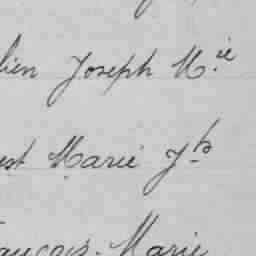 lien Joseph M.ie
est Marie Jh
ançois-Marie